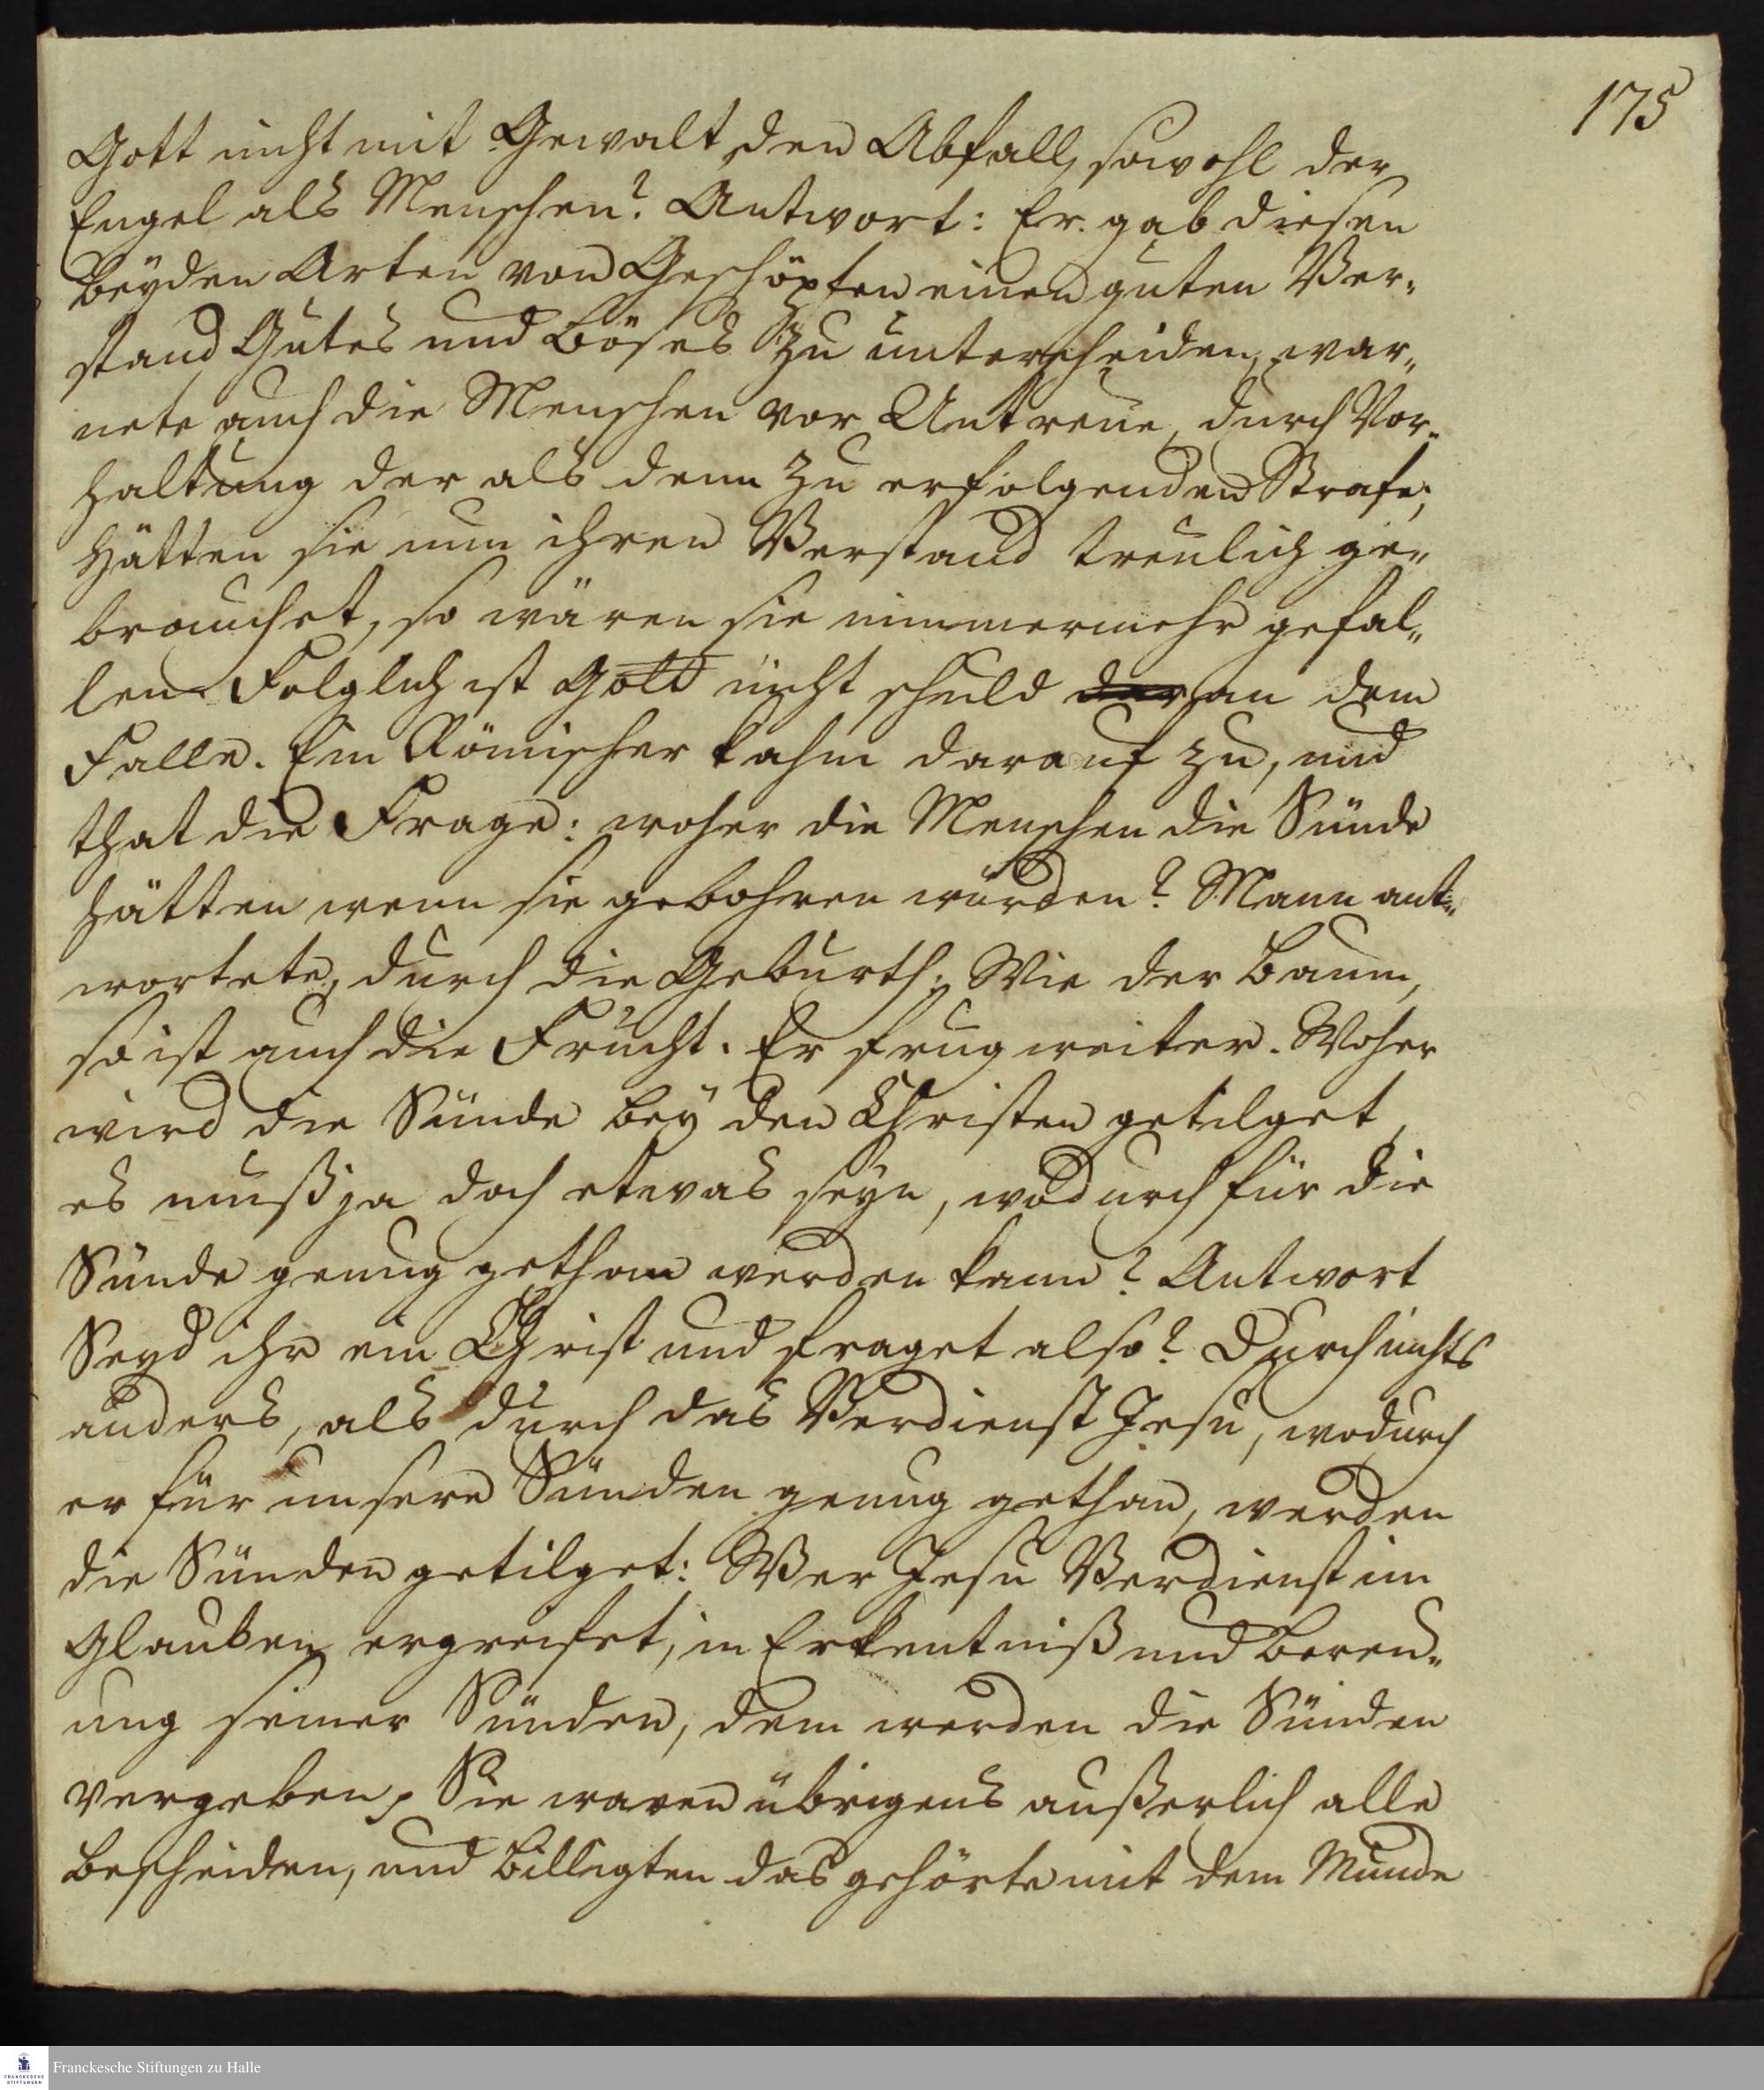 175
Gott nicht mit Gewalt den Abfall, sowohl der
Engel als Menschen? Antwort: Er gab diesen
beyden Arten von Geschöpfen einen guten Ver„
stand Gutes und Böses zu unterscheiden, war„
nete auch die Menschen vor Untreue, durch Vor„
haltung der als denn zu erfolgenden Strafe;
Hätten sie nun ihren Verstand treulich ge„
brauchet, so wären sie nimmermehr gefal„
len. Folglich ist Gott nicht schuld dar an dem
Falle. Ein Römischer kahm darauf zu, und
that die Frage: woher die Menschen die Sünde
hätten wenn sie gebohren würden? Mann ant„
wortete, durch die Geburth; Wie der Baum,
so ist auch die Frucht. Er frug weiter. Woher
wird die Sünde bey den Christen getilget,
es muß ja doch etwas seyn, wodurch für die
Sünde genug gethan werden kann? Antwort
Seyd ihr ein Christ und fraget also? Durch nichts
anders, als durch das Verdienst Jesu, wodurch
er für unsere Sünden genug gethan, werden
die Sünden getilget: Wer Jesu Verdienst im
Glauben ergreifet, in Erkentniß und Bereu„
ung seiner Sünden, dem werden die Sünden
vergeben. Sie waren übrigens außerlich alle
bescheiden, und billigten das gehörte mit dem Munde
Franckesche Stiftungen zu Halle
FRANCKESCHE
STIFTUNGEN